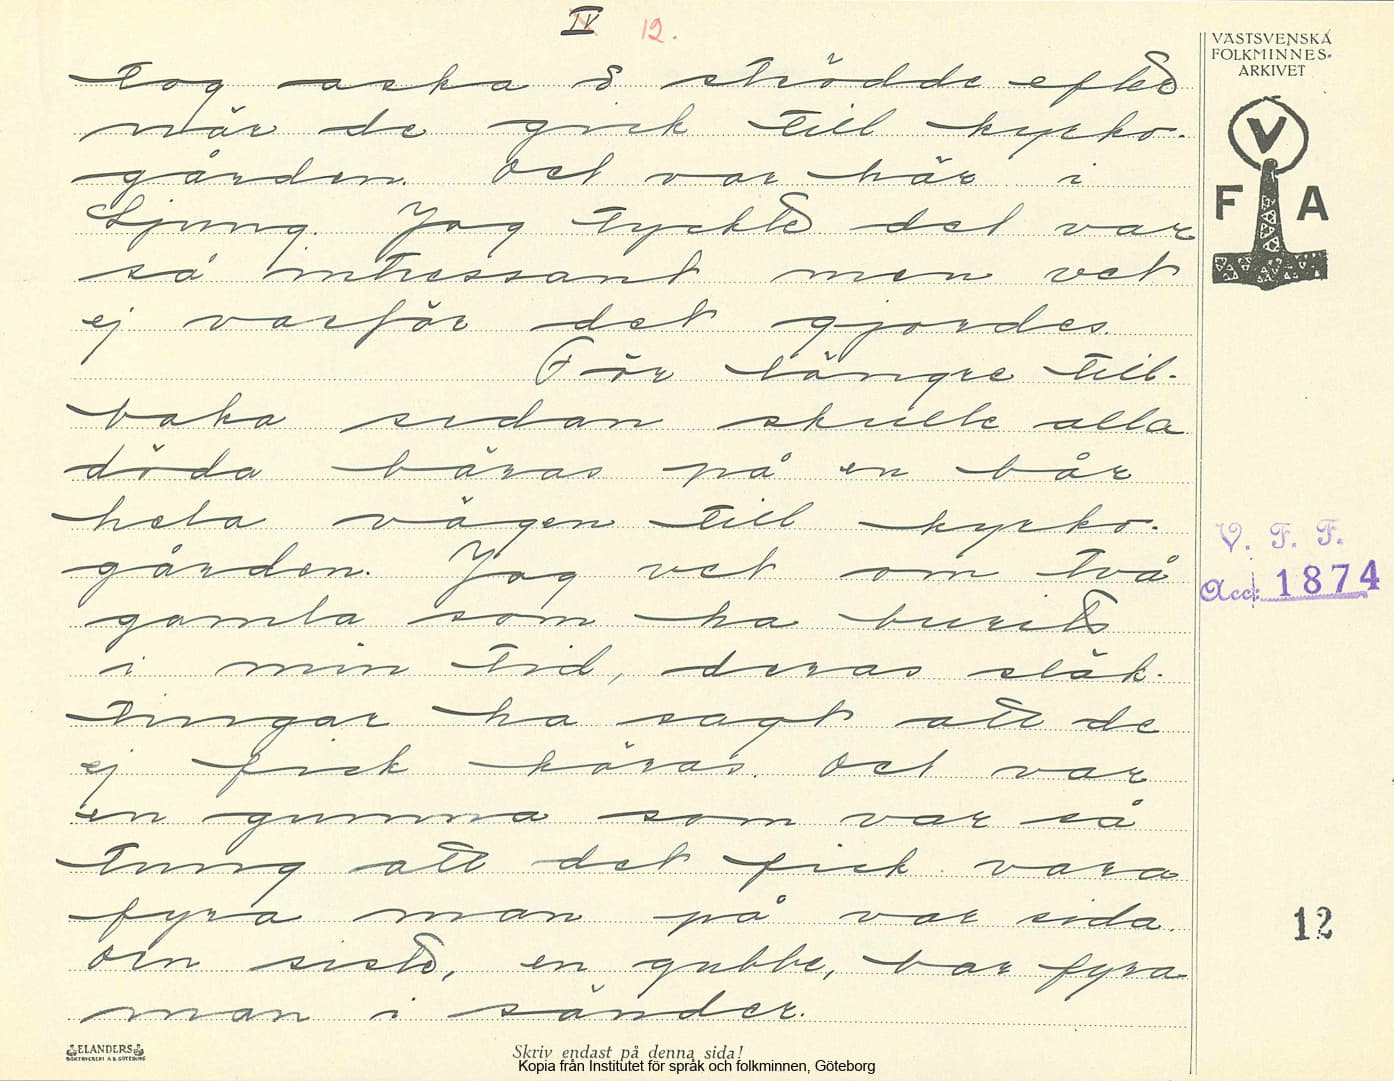 IV 12.
VÄSTSVENSKA
FOLKMINNES-
ARKIVET
V
F A
tog aska & strödde efter
när de gick till kyrko-
gården. Det var här i
Ljung. Jag tyckte det var
så intressant men vet
ej varför det gjordes.
För längre till-
baka sedan skulle alla
döda bäras på en bår
hela vägen till kyrko-
gården. Jag vet om två
gamla som ha burits
i min tid, deras släk-
tingar ha sagt att de
ej fick köras. Det var
en gumma som var så
tung att det fick vara
fyra man på var sida.
Den siste, en gubbe, bar fyra
man i sänder.
V. F. F.
Acc: 1874
12
ELANDERS
BOKTRYCKERI A.B. GÖTEBORG
Skriv endast på denna sida!
Kopia från Institutet för språk och folkminnen, Göteborg